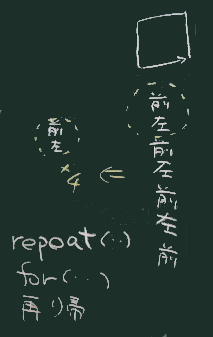 前
左
前
左
前
左
前
前
左
*4 ⇐
repeat(··)
for(···)
再り帰